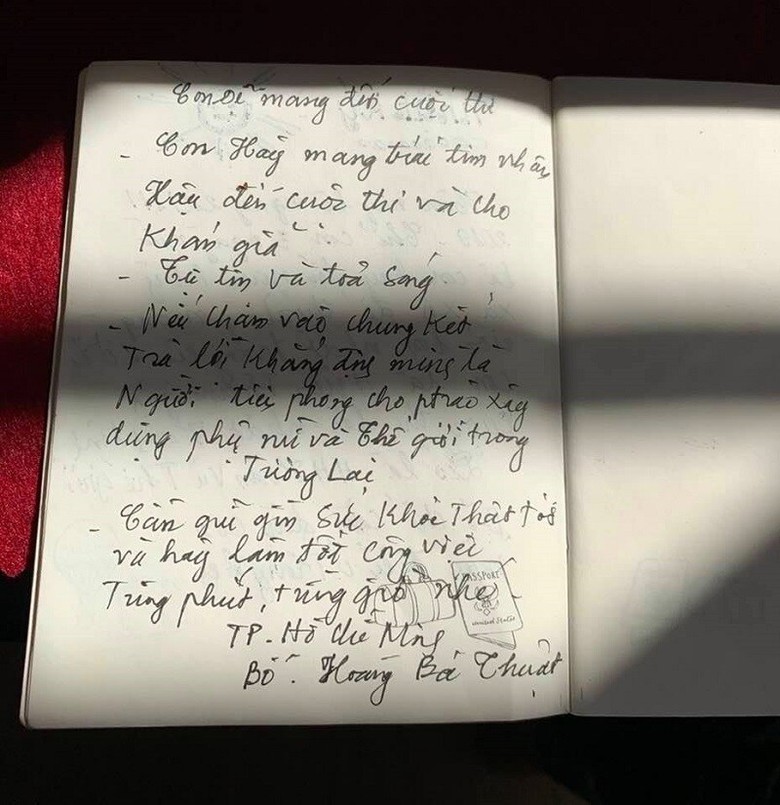 Con Để mang đến cuôi thi
- Con Hãy mang trái tim nhân
Hậu đến cuôc thi và cho
Khán giả
- Tự tin và toả sáng
- Nếu chạm vào chung Kết
Trả lời Khẳng định mình là
Người tiên phong cho ptrào xây
dựng phụ nữ và Thế giới trong
Tương Lai
- Cần giữ gìn Sức Khỏe Thật tốt
và hãy làm tốt công việc
Từng phút, từng giờ nhé
PASSPORT
TP. Hồ Chí Minh
Bố: Hoàng Bá Thuật